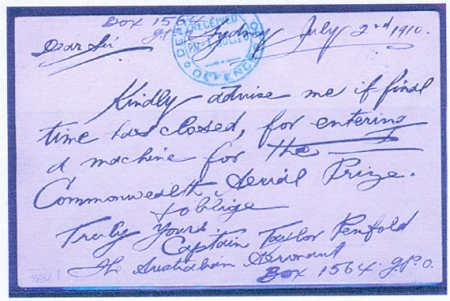 Box 1564
G.P.O. Sydney July 2nd 1910.
Dear Sir
RECEIVED
DEFENCE
Kindly advise me if final
time has closed, for entering
a machine for the
Commonwealth Aerial Prize.
& oblige
Truly Yours
Captain Taylor Penfold
The Australian Aeronaut
Box 1564. G.P.O.